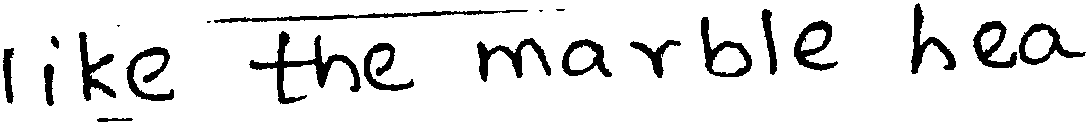 like the marble hea